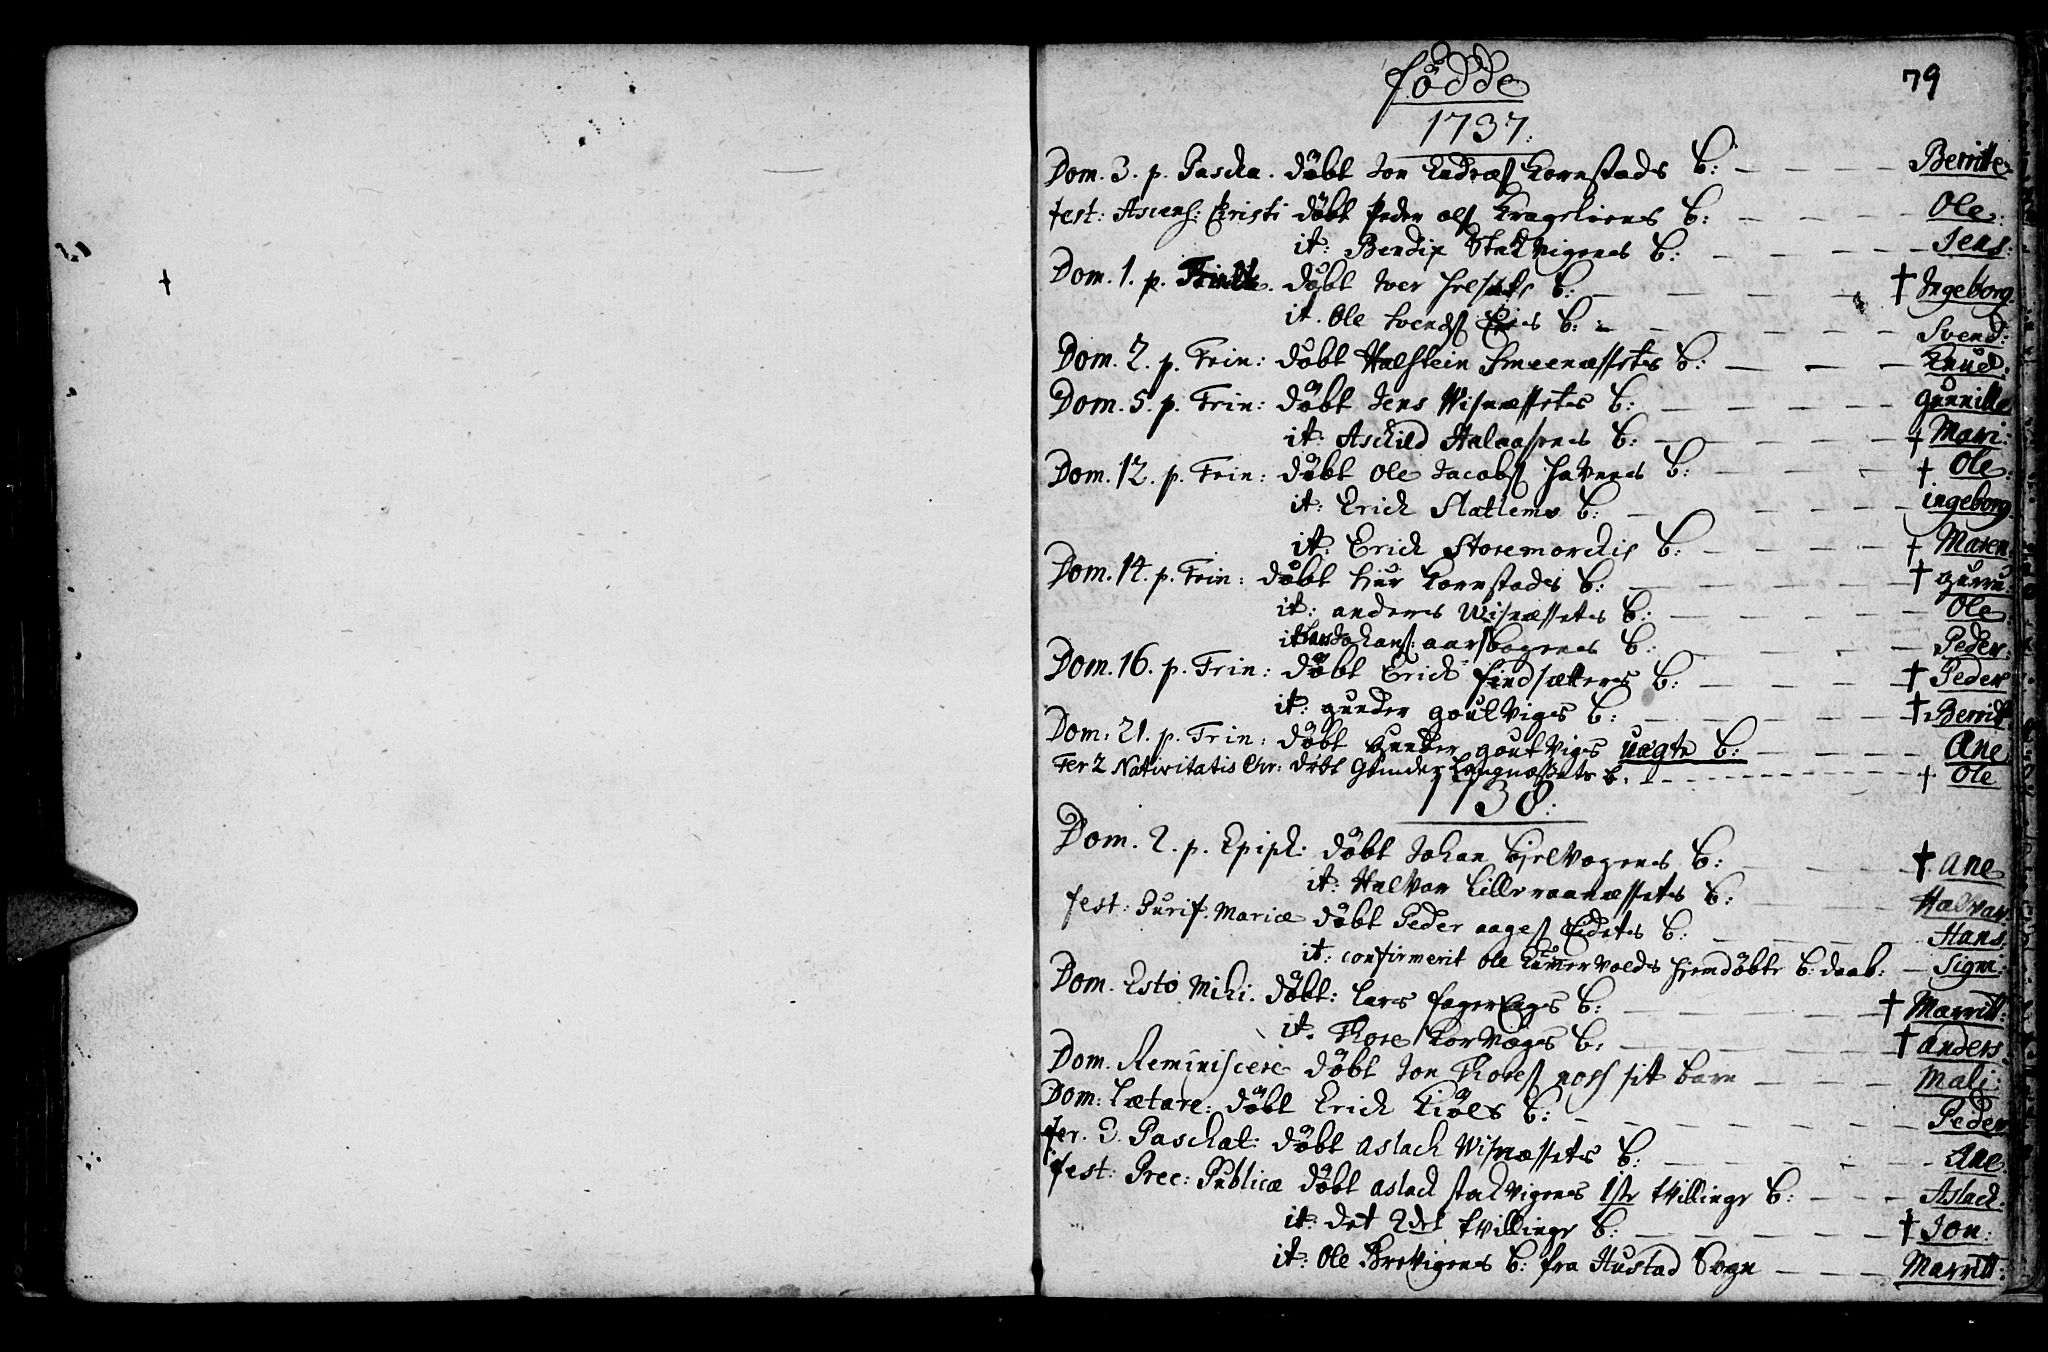 79
födde
1737.
Dom. 3. p. Pascha. döbt Jon Endræs Kornstads B: Beritte
fest: Ascens: Christi döbt Peder ols Krageliens B: Ole.
it: Bendix Stakvigens B: Jens:
Dom. 1. p. döbt Iver B: † Ingeborg.
it. Ole Svends B: Svend:
Dom. 2. p. Trin: döbt Halstein Smeenæssets B: Knud.
Dom. 5. p. Trin: döbt Jens Wisnæssets B: gunnille
it: Aschild Halaasens B: † Mari:
Dom. 12. p. Trin: döbt Ole Jacobs havnens B: † Ole.
it: Erich Slatlems B: ingeborg.
it: Erich Storemorchis B: † Maren.
Dom. 14. p. Trin: döbt Kornstads B: † gurru.
it: anders Wisnæssets B: Ole
it: Johans: aarsbogens B: Peder.
Dom. 16. p. Trin: döbt Erich findsætters B: † Peder
it: gunder goulvigs B: † Berrit
Dom: 21. p. Trin: döbt gunder goulvigs uægte B: Ane
Fer 2 Nativitatis Chr: döbt Gunder Langnæssets B: † Ole
1738.
Dom. 2. p. Epiph: döbt Johan Kjelvogens B: † Ane
it: Halvar Lilleraanæssets B: Halvar.
fest: Purif. Mariæ döbt Peder aages Eidets B: Hans
it: confirmerit Ole Kummervolds hiemdöbte B: daab: Signi:
Dom. Esto Mihi. döbt: Lars B: † Marritt:
it. Thore Korvogs B: † anders.
Dom. Reminiscere döbt Jon Thores sit barn Mali:
Dom: Lætare: döbt Erich Kiöls B: Peder
fer. 3. Paschat: döbt Aslach Wisnæssets B: Ane.
fest: Prec: Publicæ döbt aslach stakvigens 1ste tvillinge B: Aslach:
it: det 2det tvillinge B: † Jon:
it: Ole Brevigens B: fra Hustad Sogn Marrit: